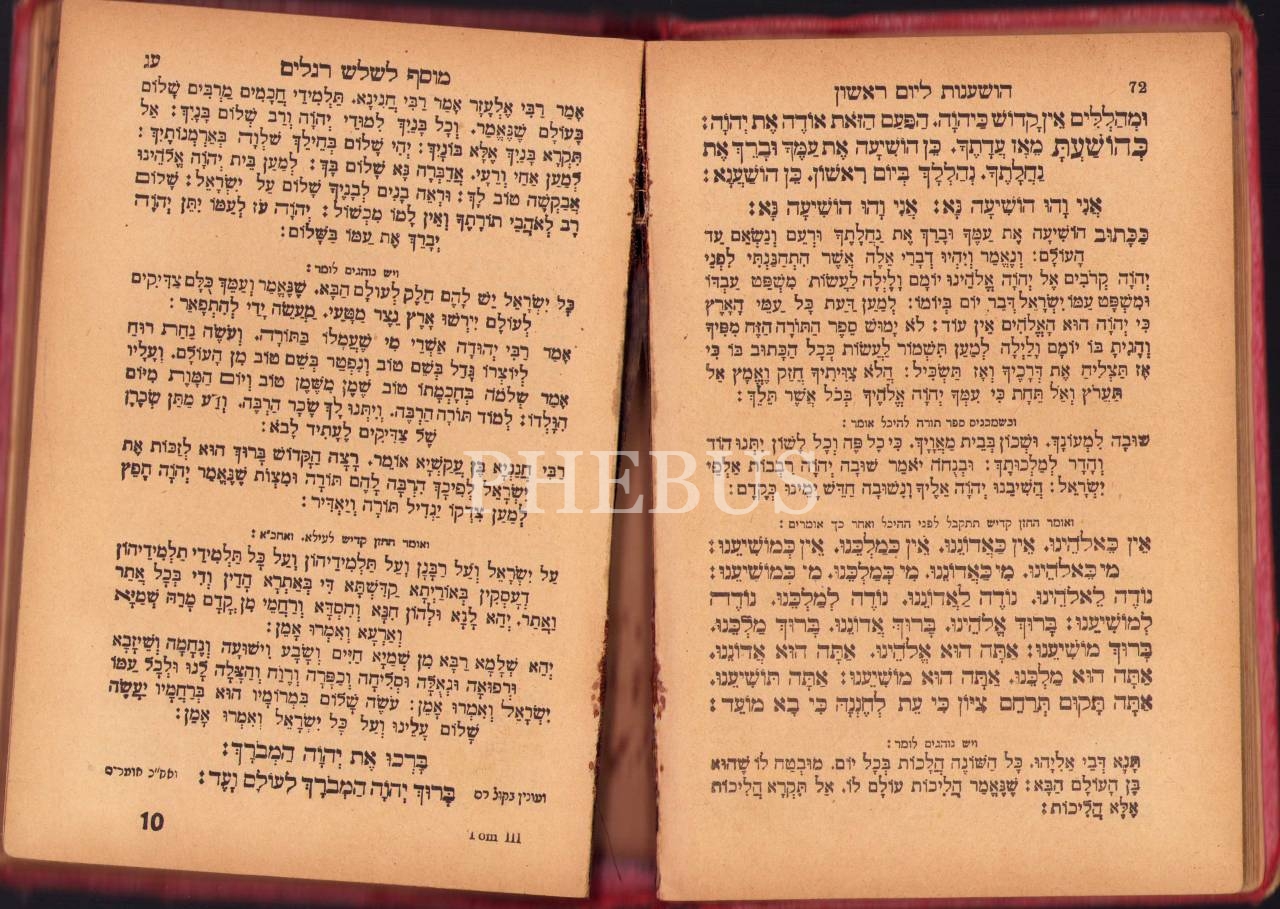 72
הושענות ליום ראשון
וּמְהַלְלִים אֵין קָדוֹשׁ כַּיהֹוָה. הַפַּעַם הַזֹּאת אוֹדֶה אֶת יְהֹוָה:
כְּהוֹשַׁעְתָּ מֵאָז עֲדָתֶךָ. כֵּן הוֹשִׁיעָה אֶת עַמֶּךָ וּבָרֵךְ אֶת
נַחֲלָתֶךָ. נְהַלְלָךְ בְּיוֹם רִאשׁוֹן. כֵּן הוֹשַׁעֲנָא:
אֲנִי וָהוּ הוֹשִׁיעָה נָּא: אֲנִי וָהוּ הוֹשִׁיעָה נָּא:
כַּכָּתוּב הוֹשִׁיעָה אֶת עַמֶּךָ וּבָרֵךְ אֶת נַחֲלָתֶךָ וּרְעֵם וְנַשְּׂאֵם עַד
הָעוֹלָם: וְנֶאֱמַר וְיִהְיוּ דְבָרַי אֵלֶּה אֲשֶׁר הִתְחַנַּנְתִּי לִפְנֵי
יְהֹוָה קְרֹבִים אֶל יְהֹוָה אֱלֹהֵינוּ יוֹמָם וָלָיְלָה לַעֲשׂוֹת מִשְׁפַּט עַבְדּוֹ
וּמִשְׁפַּט עַמּוֹ יִשְׂרָאֵל דְּבַר יוֹם בְּיוֹמוֹ: לְמַעַן דַּעַת כָּל עַמֵּי הָאָרֶץ
כִּי יְהֹוָה הוּא הָאֱלֹהִים אֵין עוֹד: לֹא יָמוּשׁ סֵפֶר הַתּוֹרָה הַזֶּה מִפִּיךָ
וְהָגִיתָ בּוֹ יוֹמָם וָלַיְלָה לְמַעַן תִּשְׁמוֹר לַעֲשׂוֹת כְּכָל הַכָּתוּב בּוֹ כִּי
אָז תַּצְלִיחַ אֶת דְּרָכֶיךָ וְאָז תַּשְׂכִּיל: הֲלֹא צִוִּיתִיךָ חֲזַק וֶאֱמָץ אַל
תַּעֲרֹץ וְאַל תֵּחָת כִּי עִמְּךָ יְהֹוָה אֱלֹהֶיךָ בְּכֹל אֲשֶׁר תֵּלֵךְ:
וכשמכניס ספר תורה להיכל אומר:
שׁוּבָה לִמְעוֹנָךְ. וּשְׁכוֹן בְּבֵית מַאֲוָיָךְ. כִּי כָל פֶּה וְכָל לָשׁוֹן יִתְּנוּ הוֹד
וְהָדָר לְמַלְכוּתָךְ: וּבְנֻחֹה יֹאמַר שׁוּבָה יְהֹוָה רִבְבוֹת אַלְפֵי
יִשְׂרָאֵל: הֲשִׁיבֵנוּ יְהֹוָה אֵלֶיךָ וְנָשׁוּבָה חַדֵּשׁ יָמֵינוּ כְּקֶדֶם:
ואומר החזן קדיש תתקבל לפני ההיכל ואחר כך אומרים:
אֵין כֵּאלֹהֵינוּ. אֵין כַּאדוֹנֵנוּ. אֵין כְּמַלְכֵּנוּ. אֵין כְּמוֹשִׁיעֵנוּ:
מִי כֵאלֹהֵינוּ. מִי כַאדוֹנֵנוּ. מִי כְמַלְכֵּנוּ. מִי כְמוֹשִׁיעֵנוּ:
נוֹדֶה לֵאלֹהֵינוּ. נוֹדֶה לַאֲדוֹנֵנוּ. נוֹדֶה לְמַלְכֵּנוּ. נוֹדֶה
לְמוֹשִׁיעֵנוּ: בָּרוּךְ אֱלֹהֵינוּ. בָּרוּךְ אֲדוֹנֵנוּ. בָּרוּךְ מַלְכֵּנוּ.
בָּרוּךְ מוֹשִׁיעֵנוּ: אַתָּה הוּא אֱלֹהֵינוּ. אַתָּה הוּא אֲדוֹנֵנוּ.
אַתָּה הוּא מַלְכֵּנוּ. אַתָּה הוּא מוֹשִׁיעֵנוּ: אַתָּה תּוֹשִׁיעֵנוּ.
אַתָּה תָקוּם תְּרַחֵם צִיּוֹן כִּי עֵת לְחֶנְנָהּ כִּי בָא מוֹעֵד:
ויש נוהגים לומר:
תָּנָא דְּבֵי אֵלִיָּהוּ. כָּל הַשּׁוֹנֶה הֲלָכוֹת בְּכָל יוֹם. מוּבְטָח לוֹ שֶׁהוּא
בֶּן הָעוֹלָם הַבָּא: שֶׁנֶּאֱמַר הֲלִיכוֹת עוֹלָם לוֹ. אַל תִּקְרָא הֲלִיכוֹת
אֶלָּא הֲלִיכוֹת:
מוסף לשלש רגלים
עג
אָמַר רַבִּי אֶלְעָזָר אָמַר רַבִּי חֲנִינָא. תַּלְמִידֵי חֲכָמִים מַרְבִּים שָׁלוֹם
בָּעוֹלָם שֶׁנֶּאֱמַר. וְכָל בָּנַיִךְ לִמּוּדֵי יְהֹוָה וְרַב שְׁלוֹם בָּנָיִךְ: אַל
תִּקְרָא בָּנַיִךְ אֶלָּא בּוֹנָיִךְ: יְהִי שָׁלוֹם בְּחֵילֵךְ שַׁלְוָה בְּאַרְמְנוֹתָיִךְ:
לְמַעַן אַחַי וְרֵעָי. אֲדַבְּרָה נָּא שָׁלוֹם בָּךְ: לְמַעַן בֵּית יְהֹוָה אֱלֹהֵינוּ
אֲבַקְשָׁה טוֹב לָךְ: וּרְאֵה בָנִים לְבָנֶיךָ שָׁלוֹם עַל יִשְׂרָאֵל: שָׁלוֹם
רָב לְאֹהֲבֵי תוֹרָתֶךָ וְאֵין לָמוֹ מִכְשׁוֹל: יְהֹוָה עֹז לְעַמּוֹ יִתֵּן יְהֹוָה
יְבָרֵךְ אֶת עַמּוֹ בַשָּׁלוֹם:
ויש נוהגים לומר:
כָּל יִשְׂרָאֵל יֵשׁ לָהֶם חֵלֶק לָעוֹלָם הַבָּא. שֶׁנֶּאֱמַר וְעַמֵּךְ כֻּלָּם צַדִּיקִים
לְעוֹלָם יִירְשׁוּ אָרֶץ נֵצֶר מַטָּעַי. מַעֲשֵׂה יָדַי לְהִתְפָּאֵר:
אָמַר רַבִּי יְהוּדָה אַשְׁרֵי מִי שֶׁעֲמָלוֹ בַּתּוֹרָה. וְעֹשֶׂה נַחַת רוּחַ
לְיוֹצְרוֹ גָּדַל בְּשֵׁם טוֹב וְנִפְטַר בְּשֵׁם טוֹב מִן הָעוֹלָם. וְעָלָיו
אָמַר שְׁלֹמֹה בְּחָכְמָתוֹ טוֹב שֵׁם מִשֶּׁמֶן טוֹב וְיוֹם הַמָּוֶת מִיּוֹם
הִוָּלְדוֹ: לְמוֹד תּוֹרָה הַרְבֵּה. וְיִתְּנוּ לְךָ שָׂכָר הַרְבֵּה. וְדַע מַתַּן שְׂכָרָן
שֶׁל צַדִּיקִים לֶעָתִיד לָבֹא:
רַבִּי חֲנַנְיָא בֶּן עֲקַשְׁיָא אוֹמֵר. רָצָה הַקָּדוֹשׁ בָּרוּךְ הוּא לְזַכּוֹת אֶת
יִשְׂרָאֵל לְפִיכָךְ הִרְבָּה לָהֶם תּוֹרָה וּמִצְוֹת שֶׁנֶּאֱמַר יְהֹוָה חָפֵץ
לְמַעַן צִדְקוֹ יַגְדִּיל תּוֹרָה וְיַאְדִּיר:
ואומר החזן קדיש לעילא. ואחכ״א:
עַל יִשְׂרָאֵל וְעַל רַבָּנָן וְעַל תַּלְמִידֵיהוֹן וְעַל כָּל תַּלְמִידֵי תַלְמִידֵיהוֹן
דְּעָסְקִין בְּאוֹרַיְתָא קַדִּשְׁתָּא דִּי בְּאַתְרָא הָדֵין וְדִי בְּכָל אֲתַר
וַאֲתַר. יְהֵא לָנָא וּלְהוֹן חִנָּא וְחִסְדָּא וְרַחֲמֵי מִן קֳדָם מָרֵהּ שְׁמַיָּא
וְאַרְעָא וְאִמְרוּ אָמֵן:
יְהֵא שְׁלָמָא רַבָּא מִן שְׁמַיָּא חַיִּים וְשָׂבָע וִישׁוּעָה וְנֶחָמָה וְשֵׁיזָבָא
וּרְפוּאָה וּגְאֻלָּה וּסְלִיחָה וְכַפָּרָה וְרֵוַח וְהַצָּלָה לָנוּ וּלְכָל עַמּוֹ
יִשְׂרָאֵל וְאִמְרוּ אָמֵן: עֹשֶׂה שָׁלוֹם בִּמְרוֹמָיו הוּא בְּרַחֲמָיו יַעֲשֶׂה
שָׁלוֹם עָלֵינוּ וְעַל כָּל יִשְׂרָאֵל וְאִמְרוּ אָמֵן:
בָּרְכוּ אֶת יְהֹוָה הַמְבֹרָךְ:
ועונין בקול רם בָּרוּךְ יְהֹוָה הַמְבֹרָךְ לְעוֹלָם וָעֶד: ואח״כ אומרים
Tom III
10
PHEBUS